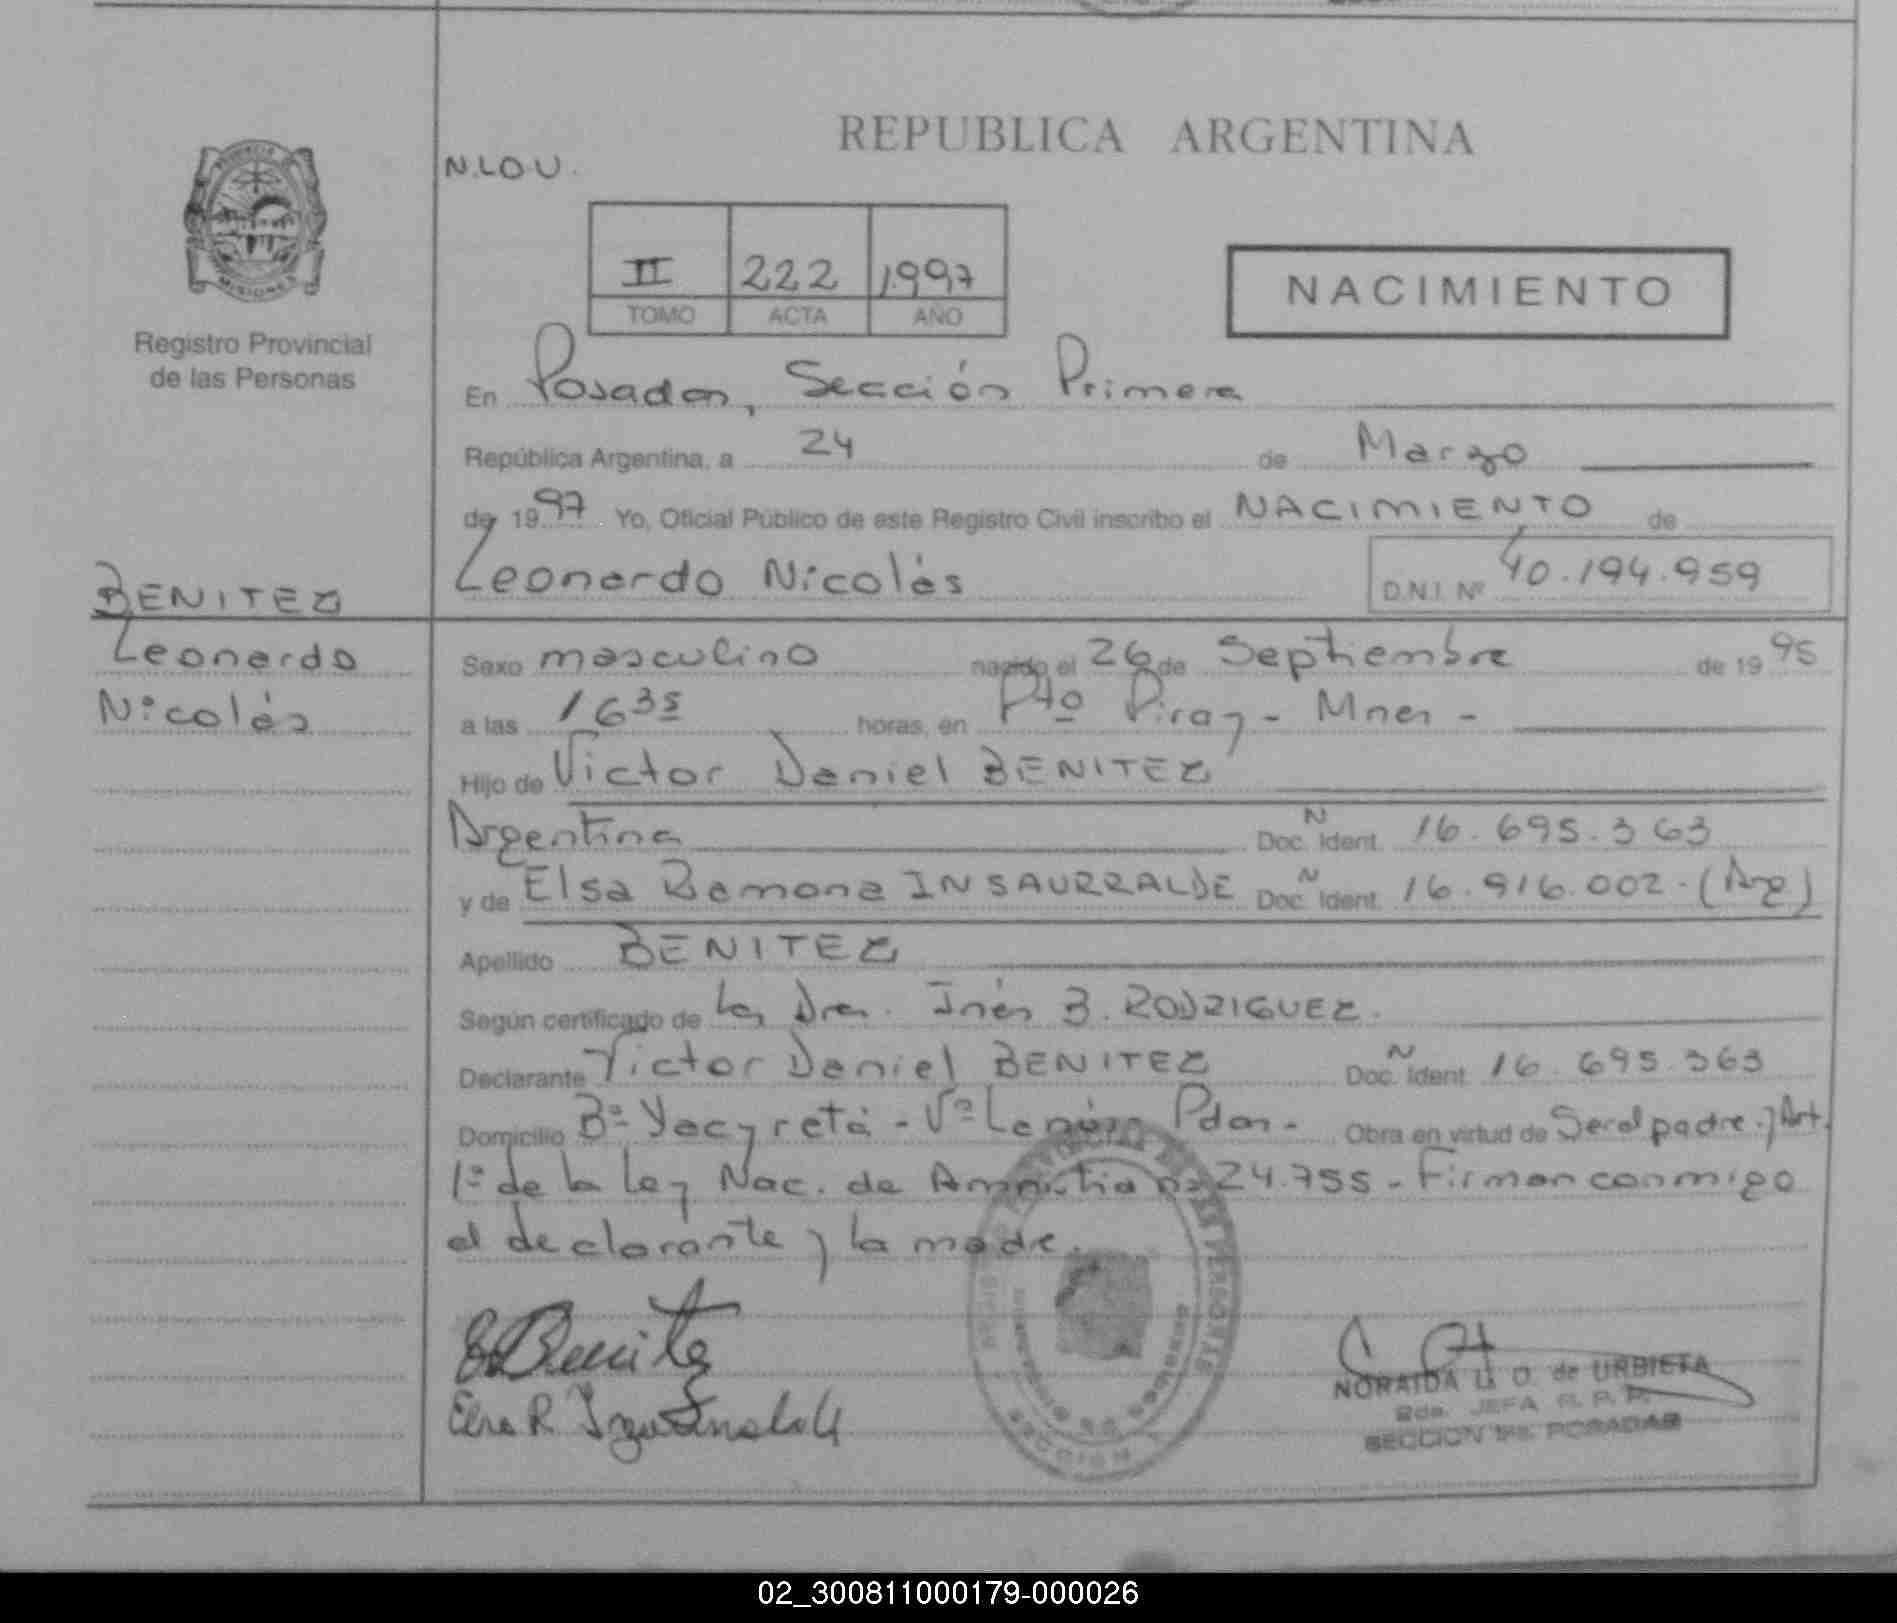 REPUBLICA ARGENTINA
N.L.O.U.
II 222 1997
TOMO ACTA AÑO
NACIMIENTO
PROVINCIA
MISIONES
Registro Provincial
de las Personas
En Posadas, Sección Primera
República Argentina, a 24 de Marzo
de 1997 Yo, Oficial Público de este Registro Civil inscribo el NACIMIENTO de
Leonardo Nicolás D.N.I. Nº 40.194.959
BENITEZ
Leonardo
Nicolás
Sexo masculino nacido el 26 de Septiembre de 1995
a las 16 35 horas, en Pto Piray - Mnes -
Hijo de Victor Daniel BENITEZ
Argentina N Doc. Ident. 16.695.363
y de Elsa Ramona INSAURRALDE N Doc. Ident. 16.916.002.(Arg)
Apellido BENITEZ
Según certificado de la Dra. Inés B. RODRIGUEZ.
Declarante Victor Daniel BENITEZ N Doc. Ident. 16.695.363
Domicilio Bº Yacyretá - Vª Pdas - Obra en virtud de Ser el padre y Art.
1º de la Ley Nac. de Amnistia nº 24.755 - Firman conmigo
el declarante y la madre.
Benitez
Elsa R
SECCION 1
NORAIDA L. O. de URBIETA
JEFA R. P. P.
SECCION 1ra. POSADAS
02_300811000179-000026